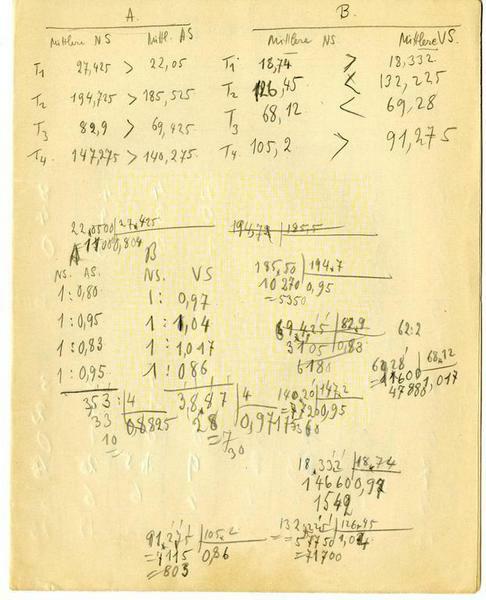 A.
Mittlere NS Mittl. AS
T1 27,425 > 22,05
T2 194,725 > 185,525
T3 82,9 > 69,425
T4. 147,275 > 140,275.
B.
Mittlere NS. Mittlere VS.
T1 18,74 > 18,332
T2 126,45 < 132,225
T3 68,12 < 69,28
T4. 105,2 > 91,275
22,0500 27,425
0,804
A B
NS. AS. NS. VS
1:0,80 1: 0,97
1:0,95 1:1,04
1:0,83 1:1,017
1:0,95 1:0,86
3,53:4 3,887 4
33 0,8825 28 0,9717
10 =7
= 30
194,7 185,5
185,50 194,7
10270 0,95
=5350
69,425 82,9 62:2
3105 0,83
618
69,28 68,12
=11600 1,017
4788
140,20 147,2
=7720 0,95
360
18,332 18,74
14660 0,97
1542
91,275 105,2
=7115 0,86
=803
132,225 126,45
=57750 1,04
=71700